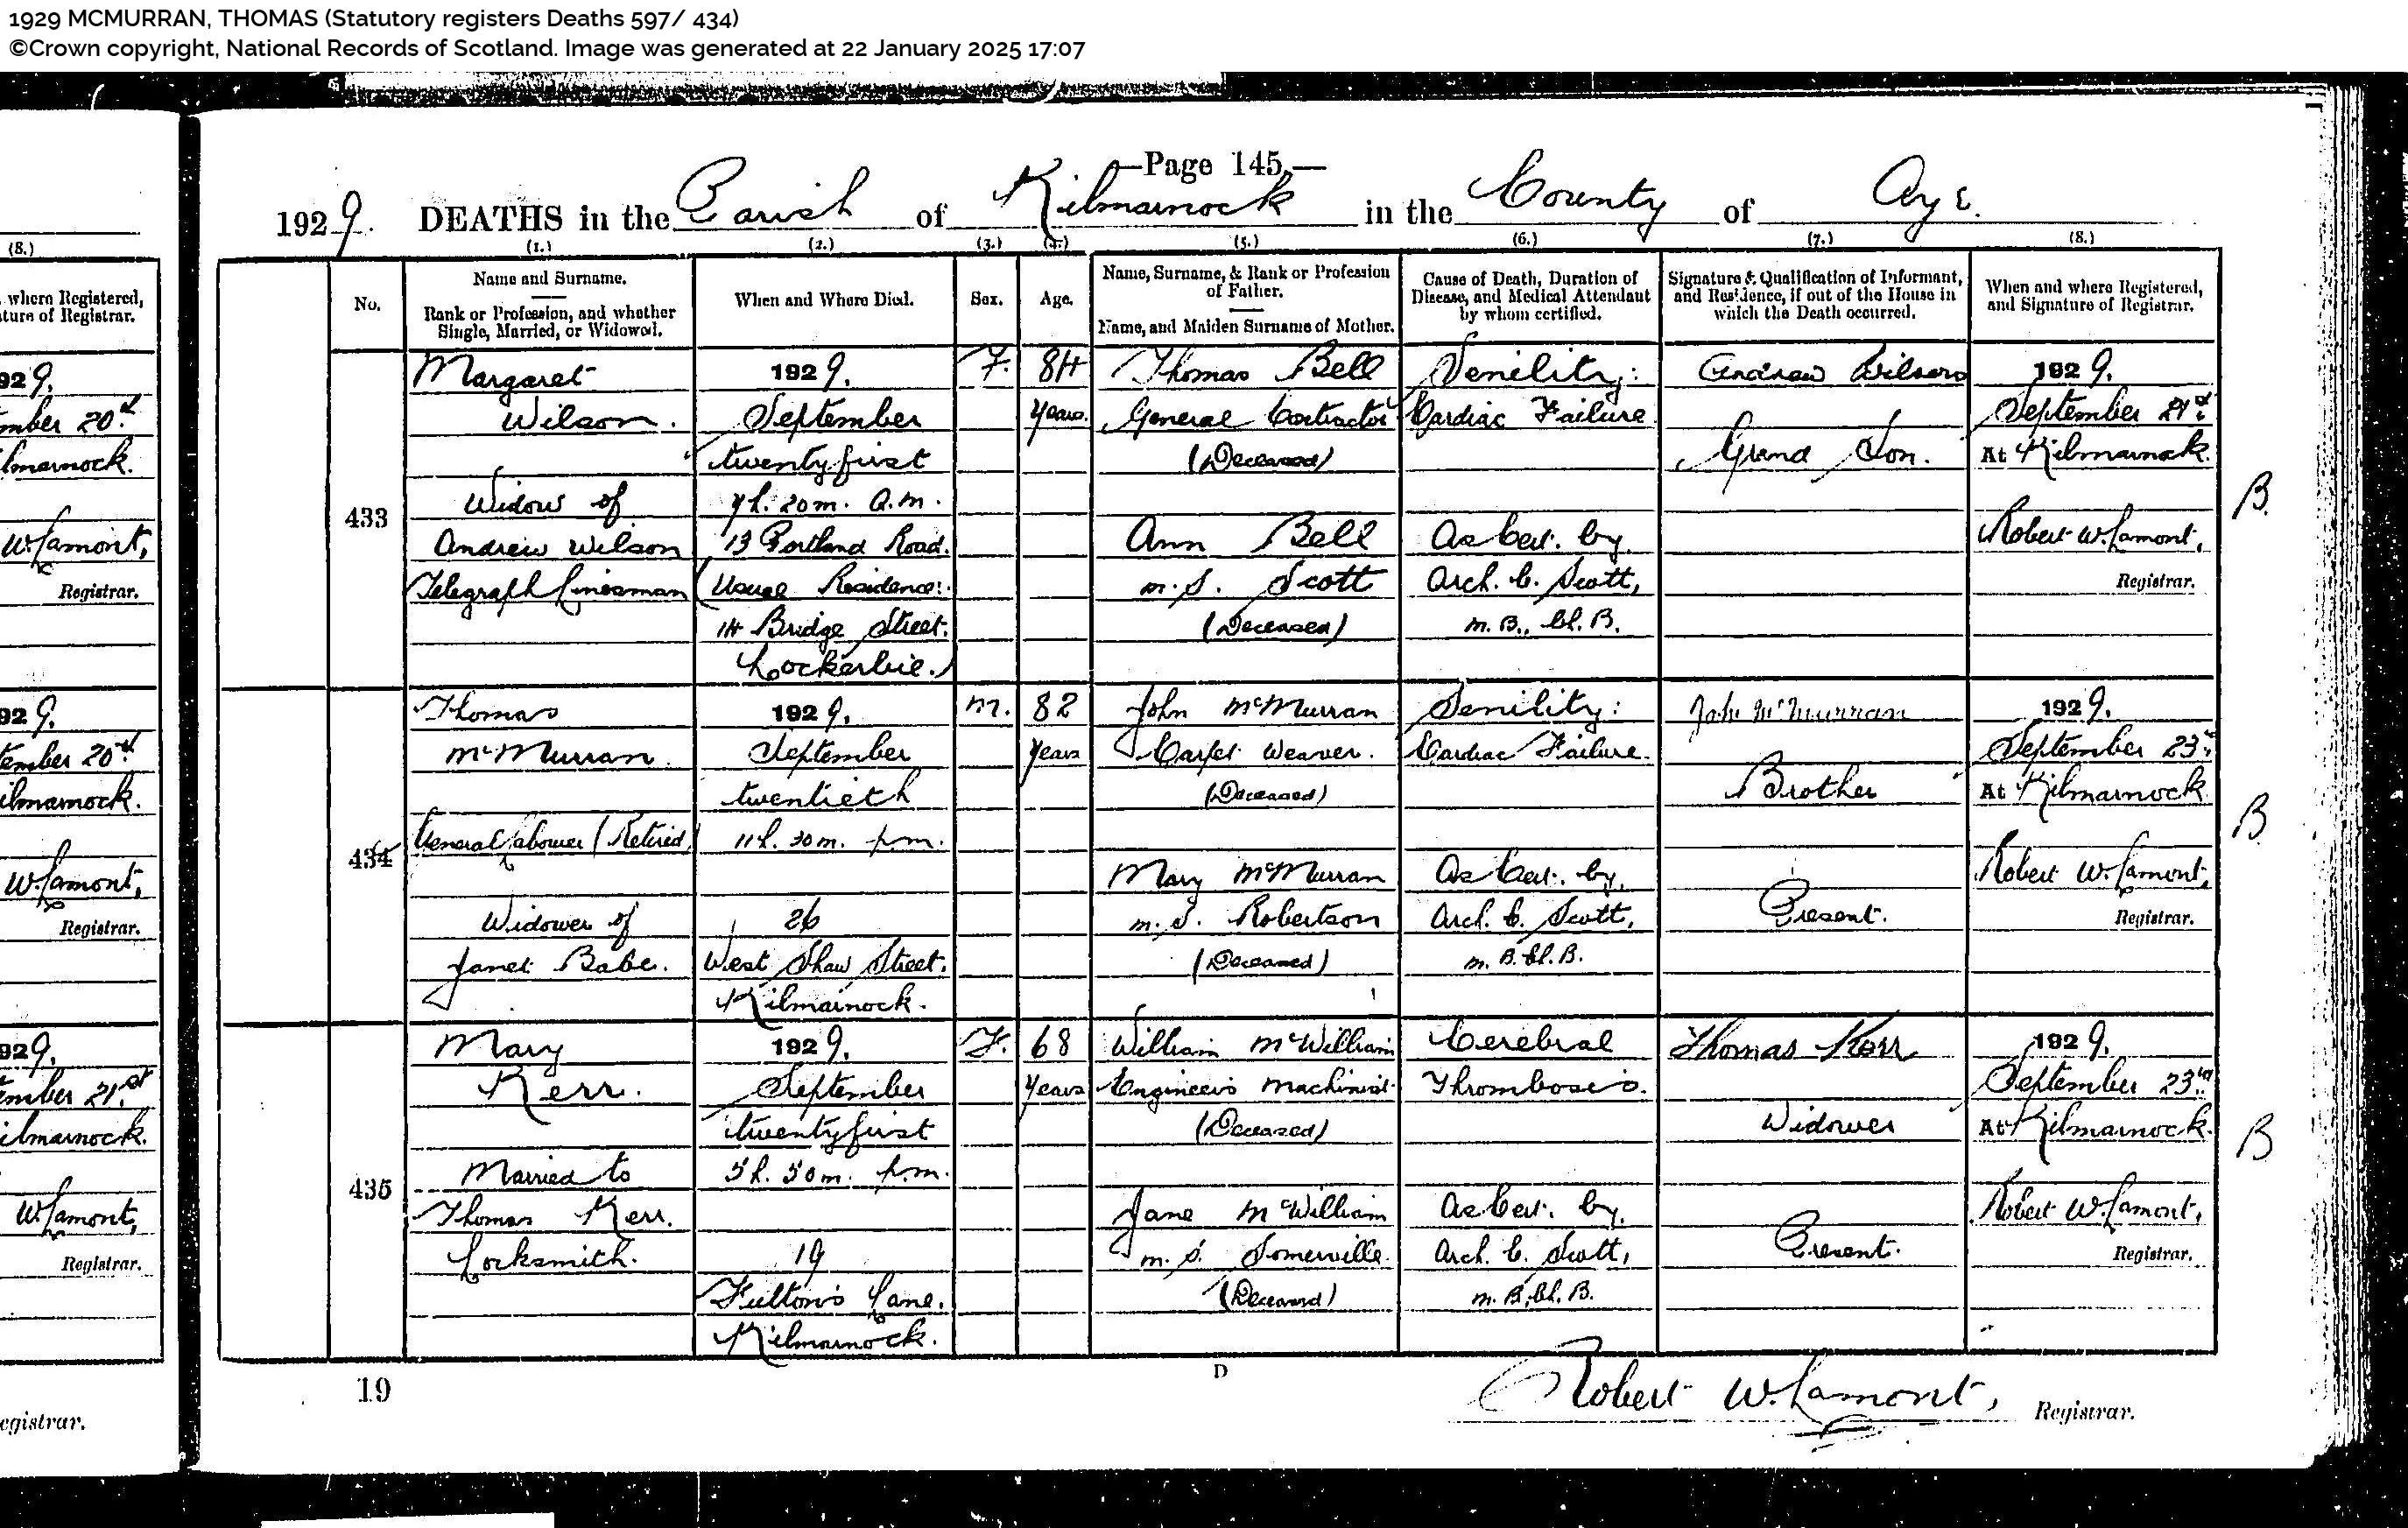 1929 MCMURRAN, THOMAS (Statutory registers Deaths 597/ 434)
©Crown copyright, National Records of Scotland. Image was generated at 22 January 2025 17:07
—Page 145.—
1929. DEATHS in the Parish of Kilmarnock in the County of Ayr.
(8.)
(1.) (2.) (3.) (4.) (5.) (6.) (7.) (8.)
where Registered,
ture of Registrar.
No.
Name and Surname.
Rank or Profession, and whether
Single, Married, or Widowed.
When and Where Died.
Sex.
Age.
Name, Surname, & Rank or Profession
of Father.
Name, and Maiden Surname of Mother.
Cause of Death, Duration of
Disease, and Medical Attendant
by whom certified.
Signature & Qualification of Informant,
and Residence, if out of the House in
which the Death occurred.
When and where Registered,
and Signature of Registrar.
929.
mber 20th
lmarnock.
W. Lamont,
Registrar.
433
Margaret
Wilson.
Widow of
Andrew Wilson
Telegraph Linesman
1929.
September
twentyfirst
7h. 20m. A.M.
13 Portland Road.
(Usual Residence:
14 Bridge Street.
Lockerbie.)
F.
84
years
Thomas Bell
General Contractor
(Deceased)
Ann Bell
m.S. Scott
(Deceased)
Senility:
Cardiac Failure
As Cert. by
Arch. C. Scott,
M.B., Ch.B.
Andrew Wilson
Grand Son.
1929.
September 21st
At Kilmarnock.
Robert W. Lamont,
Registrar.
B.
929.
tember 20th
ilmarnock.
W. Lamont,
Registrar.
434
Thomas
McMurran
General Labourer (Retired)
Widower of
Janet Babe.
1929.
September
twentieth
11h. 30m. p.m.
26
West Shaw Street.
Kilmarnock.
M.
82
years
John McMurran
Carpet Weaver.
(Deceased)
Mary McMurran
m.S. Robertson
(Deceased)
Senility:
Cardiac Failure.
As Cert. by
Arch. C. Scott,
M.B. Ch.B.
John McMurran
Brother
Present.
1929.
September 23rd
At Kilmarnock
Robert W. Lamont,
Registrar.
B.
929.
ember 21st
ilmarnock.
W. Lamont,
Registrar.
435
Mary
Kerr.
Married to
Thomas Kerr.
Locksmith.
1929.
September
twentyfirst
5h. 50m. p.m.
19
Fulton's Lane.
Kilmarnock.
F.
68
years
William McWilliam
Engineers Machinist
(Deceased)
Jane McWilliam
m.S. Somerville
(Deceased)
Cerebral
Thrombosis.
As Cert. by
Arch. C. Scott,
M.B., Ch.B.
Thomas Kerr
Widower
Present.
1929.
September 23rd
At Kilmarnock.
Robert W. Lamont,
Registrar.
B
19
D
Robert W. Lamont, Registrar.
egistrar.